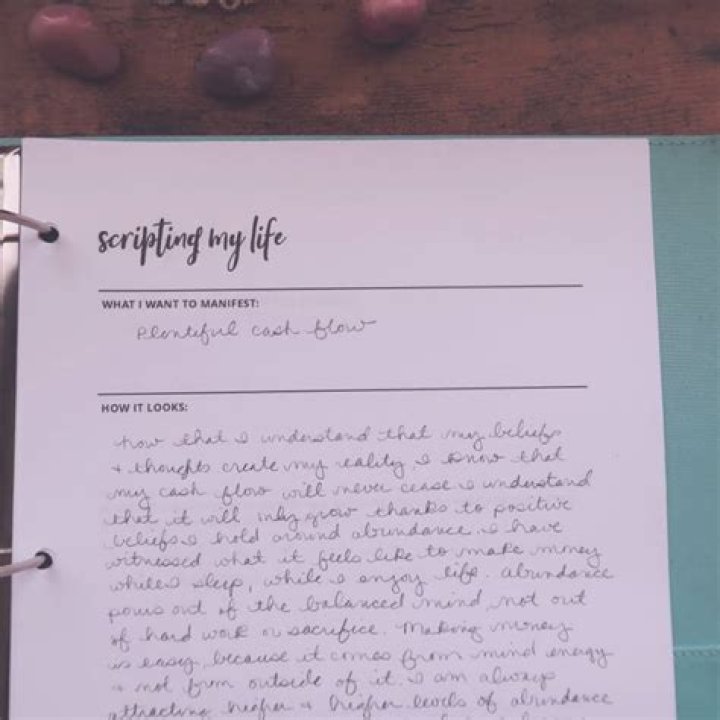 scripting my life
WHAT I WANT TO MANIFEST:
Plentiful cash flow
HOW IT LOOKS:
now that I understand that my beliefs
+ thoughts create my reality I know that
my cash flow will never cease I understand
that it will only grow thanks to positive
beliefs I hold around abundance. I have
witnessed what it feels like to make money
while I sleep, while I enjoy life. Abundance
pours out of the balanced mind, not out
of hard work or sacrifice. Making money
is easy, because it comes from mind energy
+ not from outside of it. I am always
attracting higher + higher levels of abundance